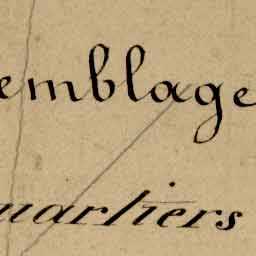 emblage
uartiers